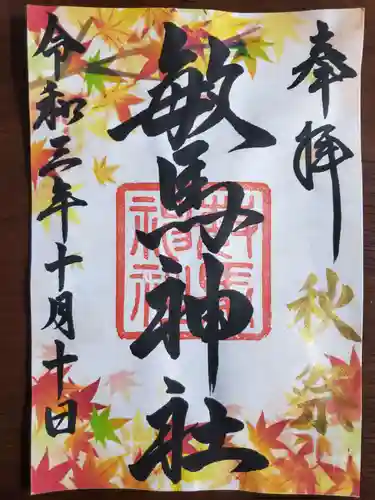 奉拝
秋祭
敏馬神社
令和三年十月十日